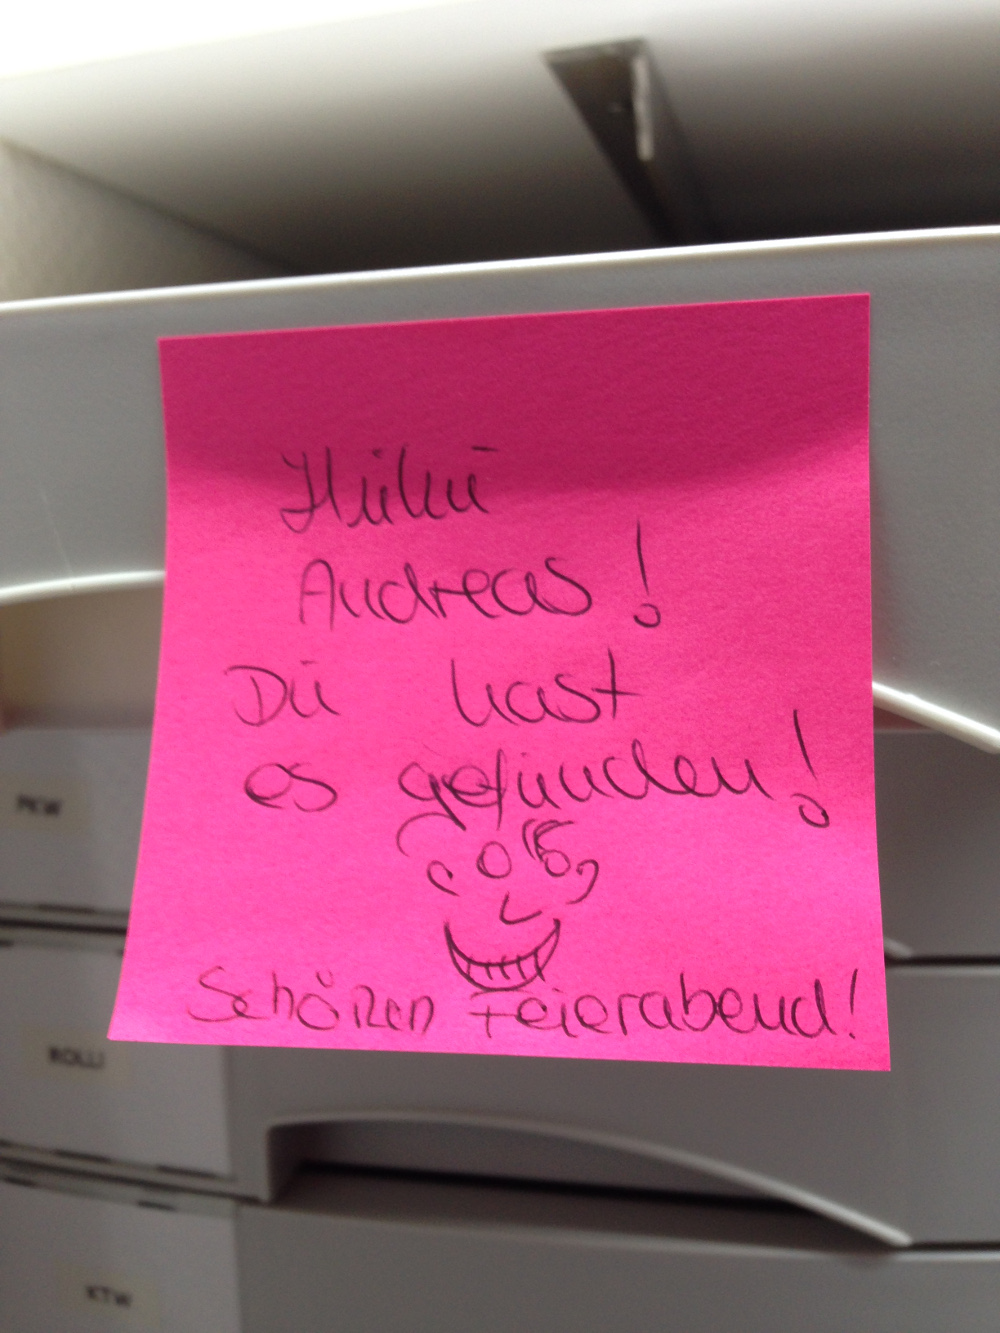 Huhu
Andreas!
Du hast
es gefunden!
Schönen Feierabend!
PKW
ROLLI
KTW